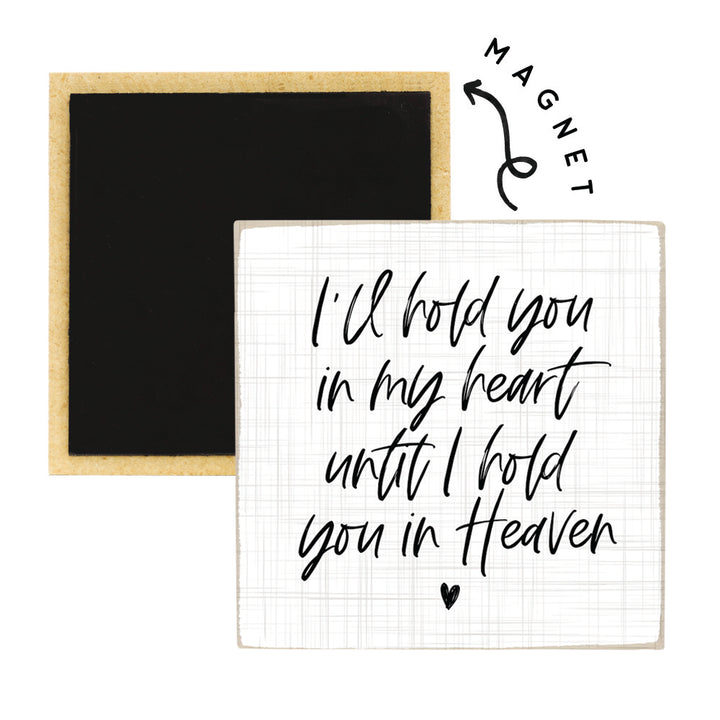 MAGNET
I'll hold you
in my heart
until I hold
you in Heaven